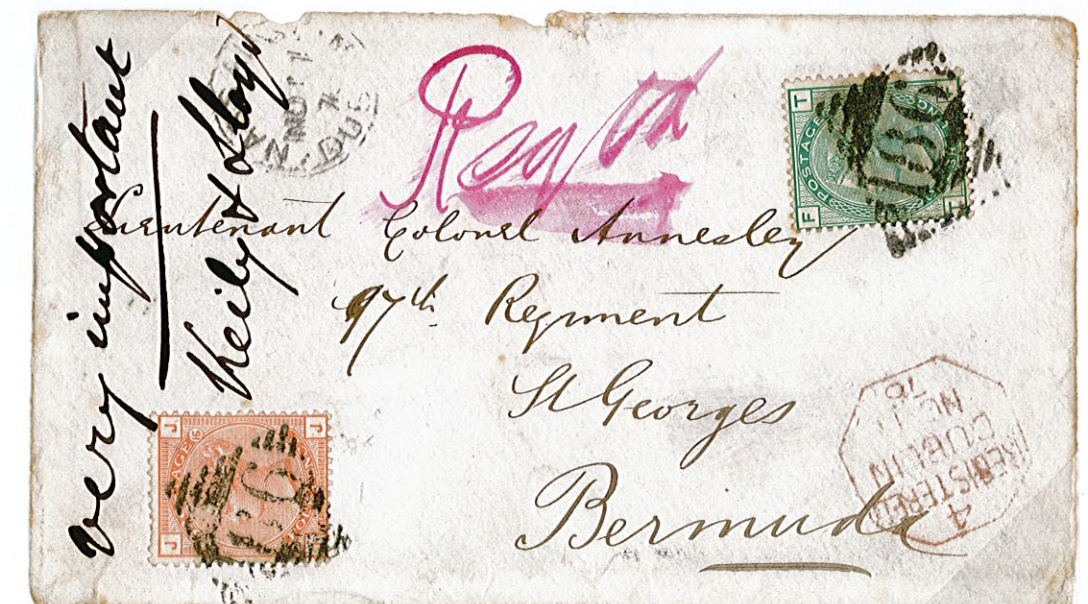 very important
Keily & Lloyd
Regd
Lieutenant Colonel Annesley
97th Regiment
St Georges
Bermuda
T F
POSTAGE
F T
186
J J
J
REGISTERED
DUBLIN
NO 11
76
4